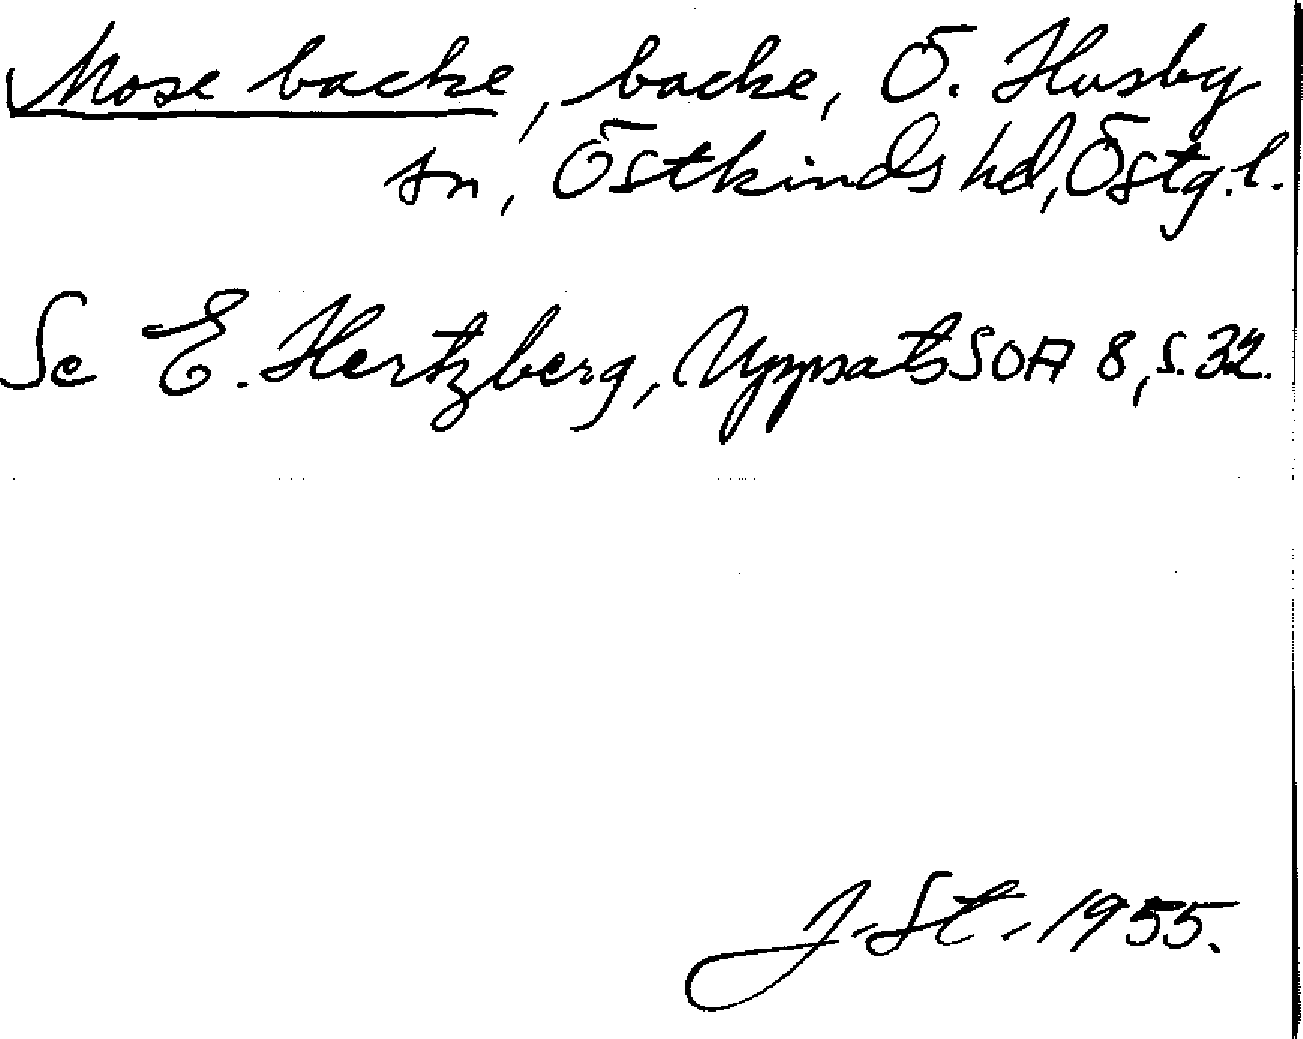 Mose backe, backe, Ö. Husby
sn, Östkinds hd, Östg. l.
Se E. Hertzberg, Uppsats SOA 8, s. 32.
J. St. 1955.